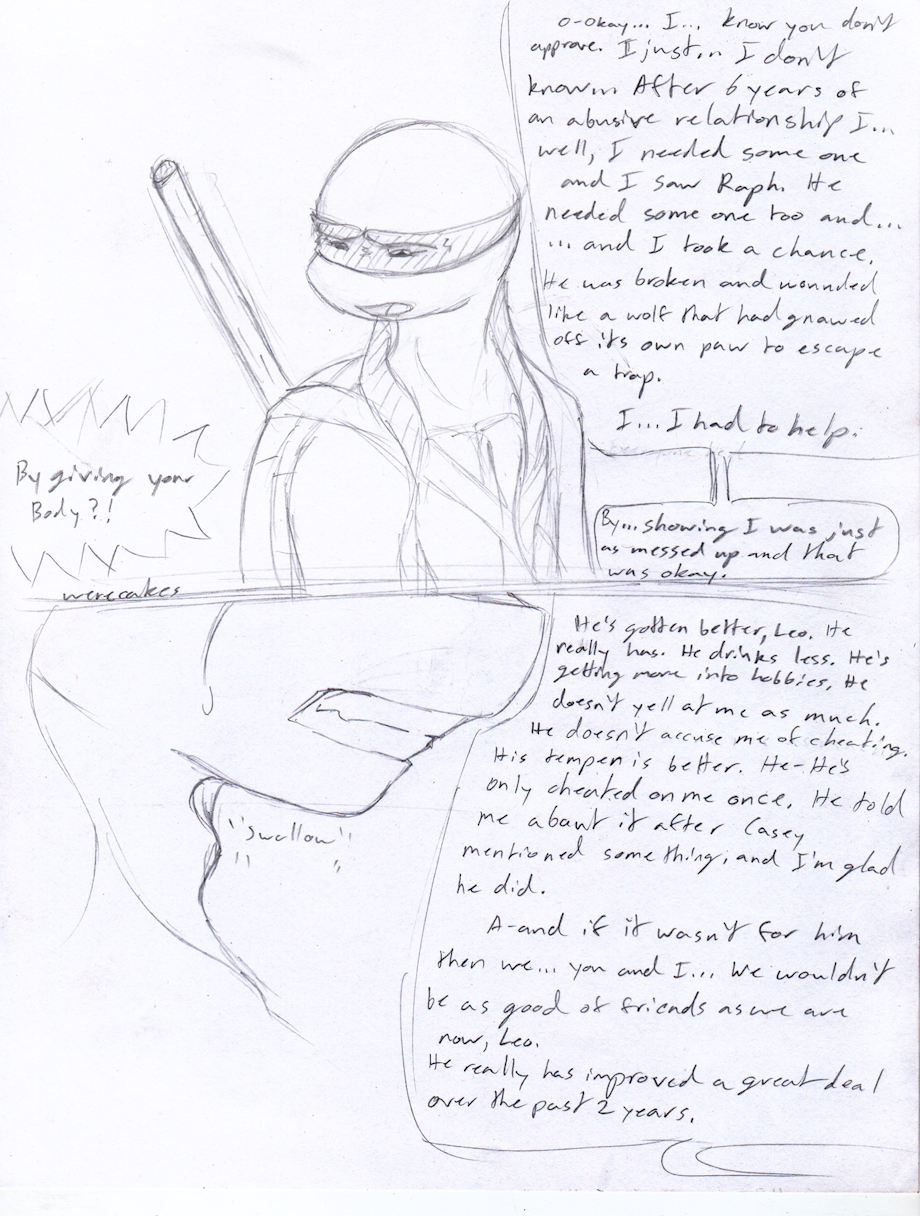 O-okay... I... know you don't
approve. I just... I don't
know... After 6 years of
an abusive relationship I...
well, I needed some one
and I saw Raph. He
needed some one too and...
... and I took a chance.
He was broken and wounded
like a wolf that had gnawed
off its own paw to escape
a trap.
I... I had to help.
By giving your
Body?!
By... showing I was just
as messed up and that
was okay.
werecakes
He's gotten better, Leo. He
really has. He drinks less. He's
getting more into hobbies. He
doesn't yell at me as much.
He doesn't accuse me of cheating.
His temper is better. He-He's
only cheated on me once. He told
me about it after Casey
mentioned something, and I'm glad
he did.
A-and if it wasn't for him
then we... you and I... We wouldn't
be as good of friends as we are
now, Leo.
He really has improved a great deal
over the past 2 years.
"Swallow"